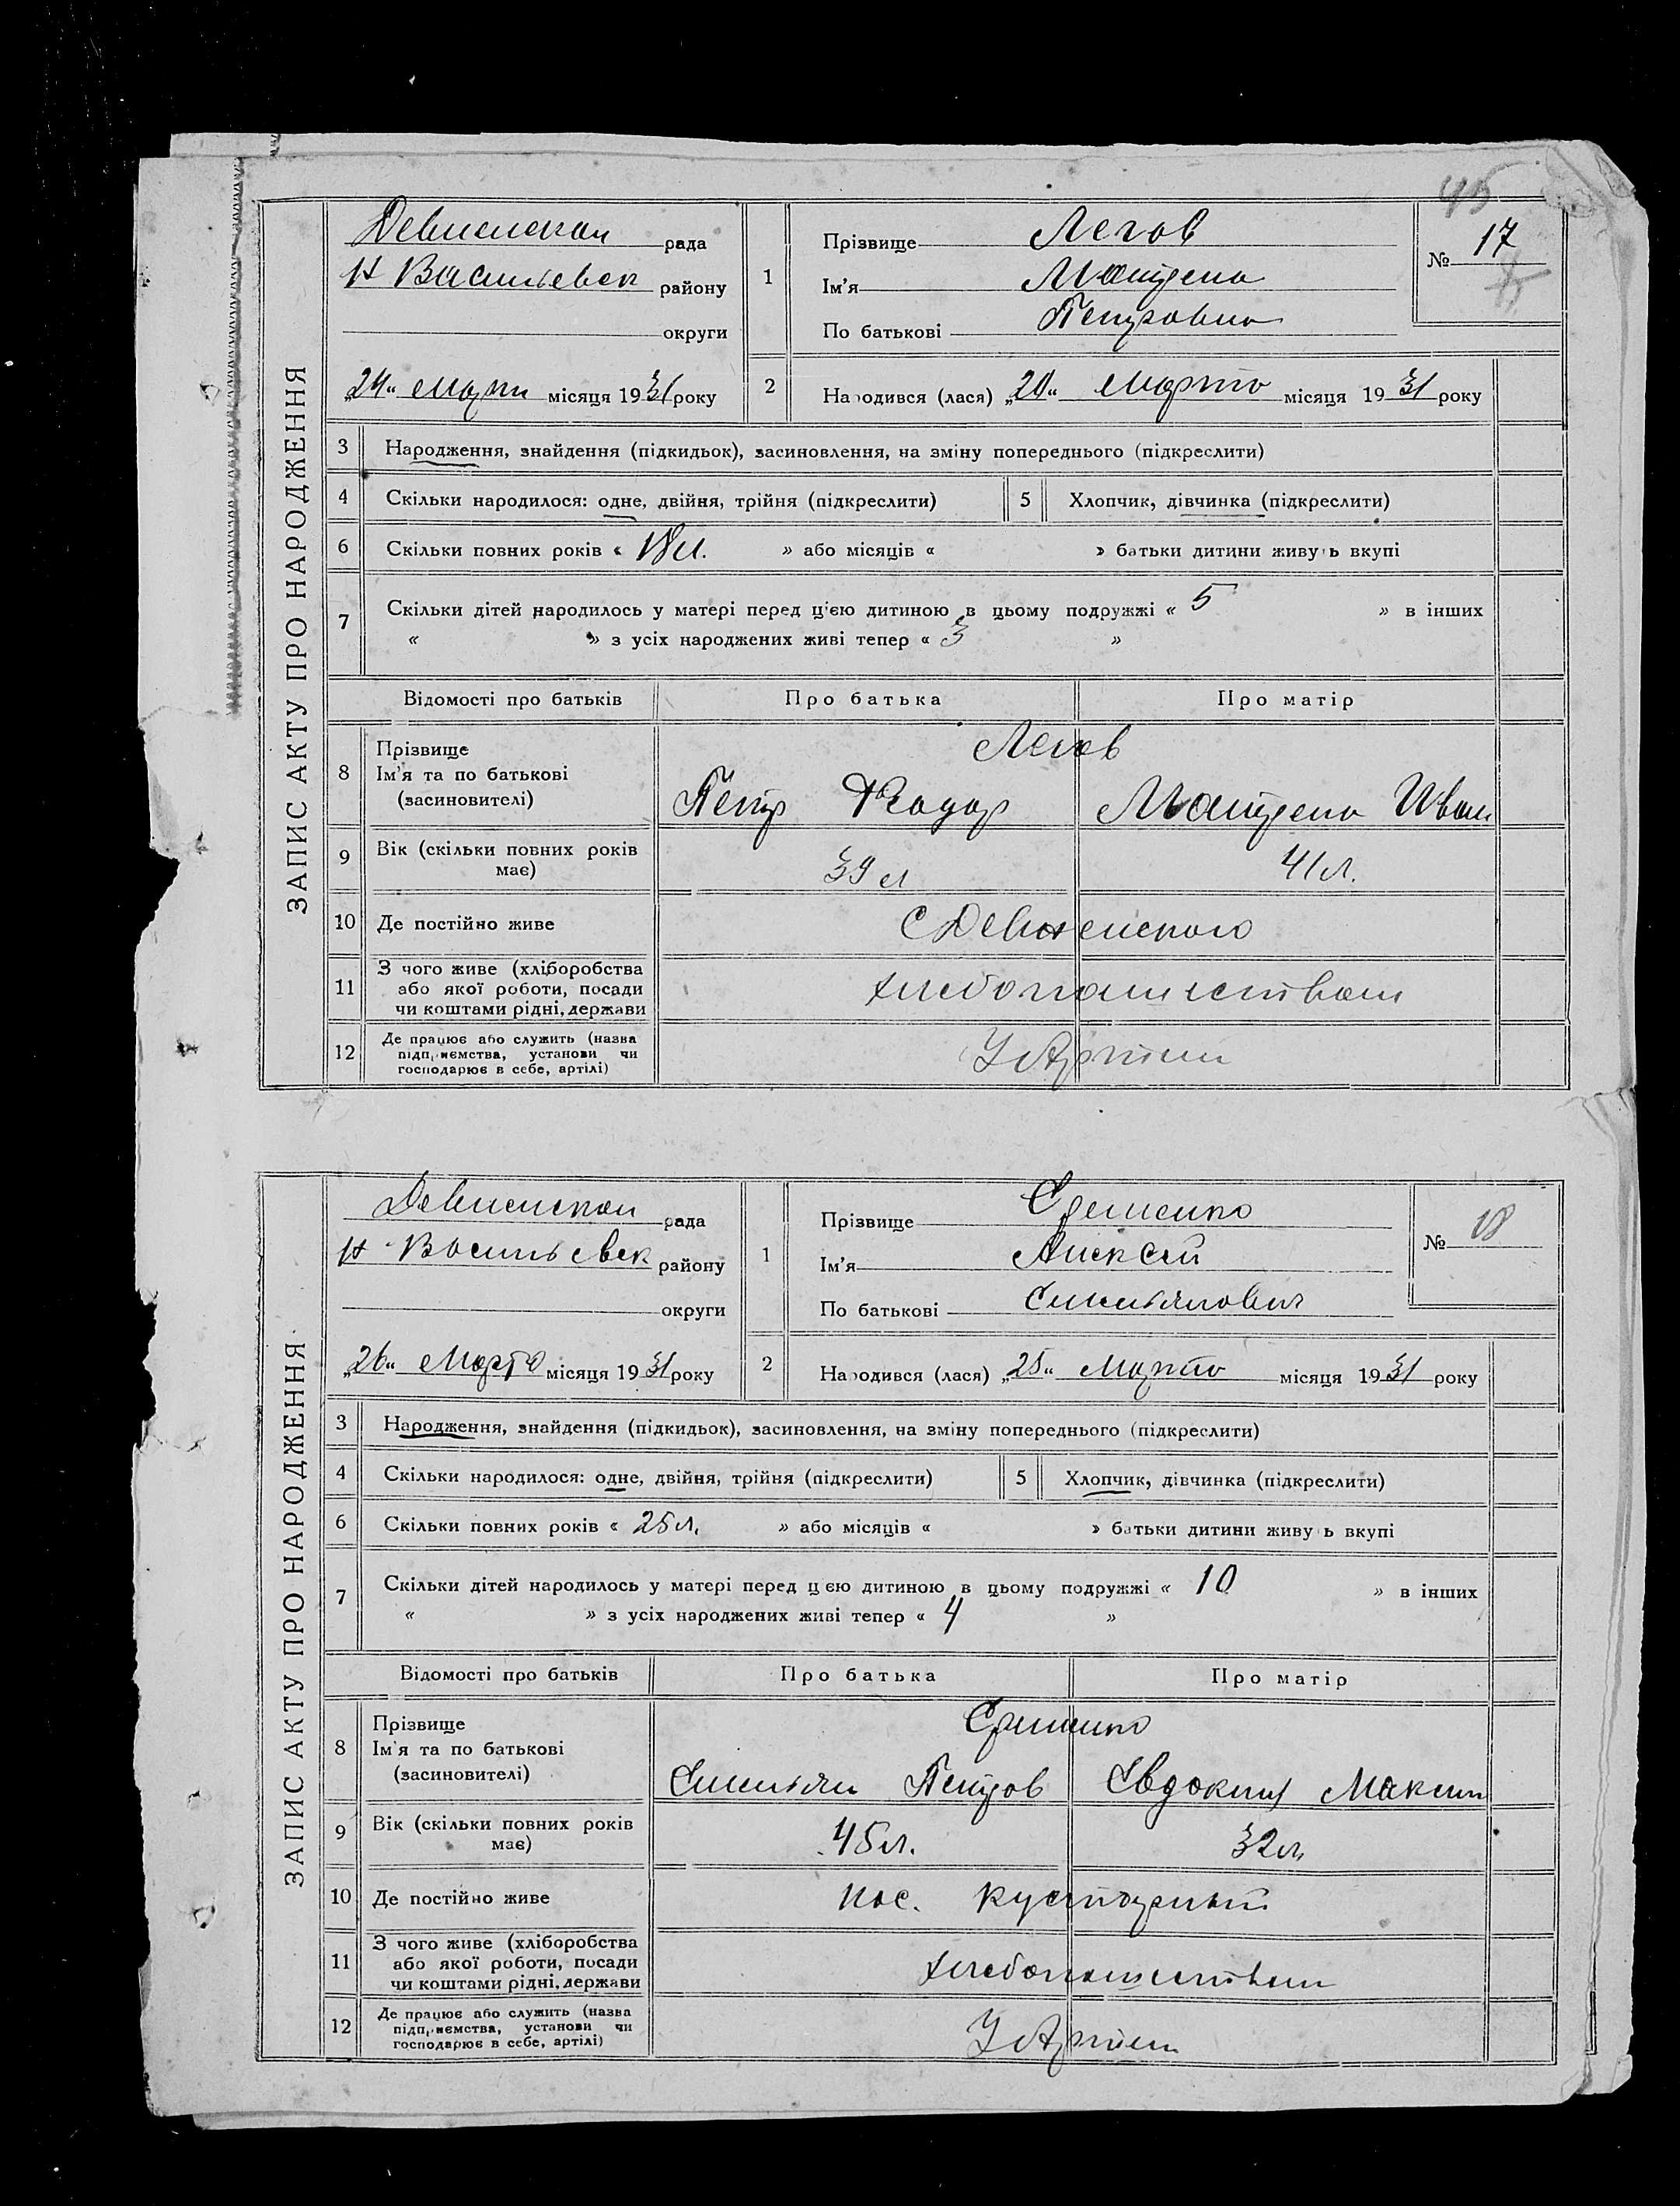 45
ЗАПИС АКТУ ПРО НАРОДЖЕННЯ
рада
Н Васильевск району
округи
„24“ Марта місяця 1931 року
1
Прізвище Легов
Ім'я Матрена
По батькові Петровна
№ 17
2
Народився (лася) „20“ Марта місяця 1931 року
3 Народження, знайдення (підкидьок), засиновлення, на зміну попереднього (підкреслити)
4 Скільки народилося: одне, двійня, трійня (підкреслити)
5 Хлопчик, дівчинка (підкреслити)
6 Скільки повних років « 18 л. » або місяців « » батьки дитини живуть вкупі
7 Скільки дітей народилось у матері перед цією дитиною в цьому подружжі « 5 » в інших
« » з усіх народжених живі тепер « 3 »
Відомості про батьків Про батька Про матір
8 Прізвище
Ім'я та по батькові
(засиновителі)
Легов
Петр Феодор Матрена Иван
9 Вік (скільки повних років
має)
39 л 41 л.
10 Де постійно живе
11 З чого живе (хліборобства
або якої роботи, посади
чи коштами рідні, держави
хлебопашеством
12 Де працює або служить (назва
підприємства, установи чи
господарює в себе, артілі)
У Артели
ЗАПИС АКТУ ПРО НАРОДЖЕННЯ
рада
Н Васильевск району
округи
„26“ Марта місяця 1931 року
1
Прізвище Еременко
Ім'я Алексей
По батькові Емельянович
№ 18
2
Народився (лася) „25“ Марта місяця 1931 року
3 Народження, знайдення (підкидьок), засиновлення, на зміну попереднього (підкреслити)
4 Скільки народилося: одне, двійня, трійня (підкреслити)
5 Хлопчик, дівчинка (підкреслити)
6 Скільки повних років « 25 л. » або місяців « » батьки дитини живуть вкупі
7 Скільки дітей народилось у матері перед цією дитиною в цьому подружжі « 10 » в інших
« » з усіх народжених живі тепер « 4 »
Відомості про батьків Про батька Про матір
8 Прізвище
Ім'я та по батькові
(засиновителі)
Еременко
Емельян Петров Евдокия Максим
9 Вік (скільки повних років
має)
45 л. 32 л.
10 Де постійно живе
пос. Кустарный
11 З чого живе (хліборобства
або якої роботи, посади
чи коштами рідні, держави
хлебопашеством
12 Де працює або служить (назва
підприємства, установи чи
господарює в себе, артілі)
У Артели